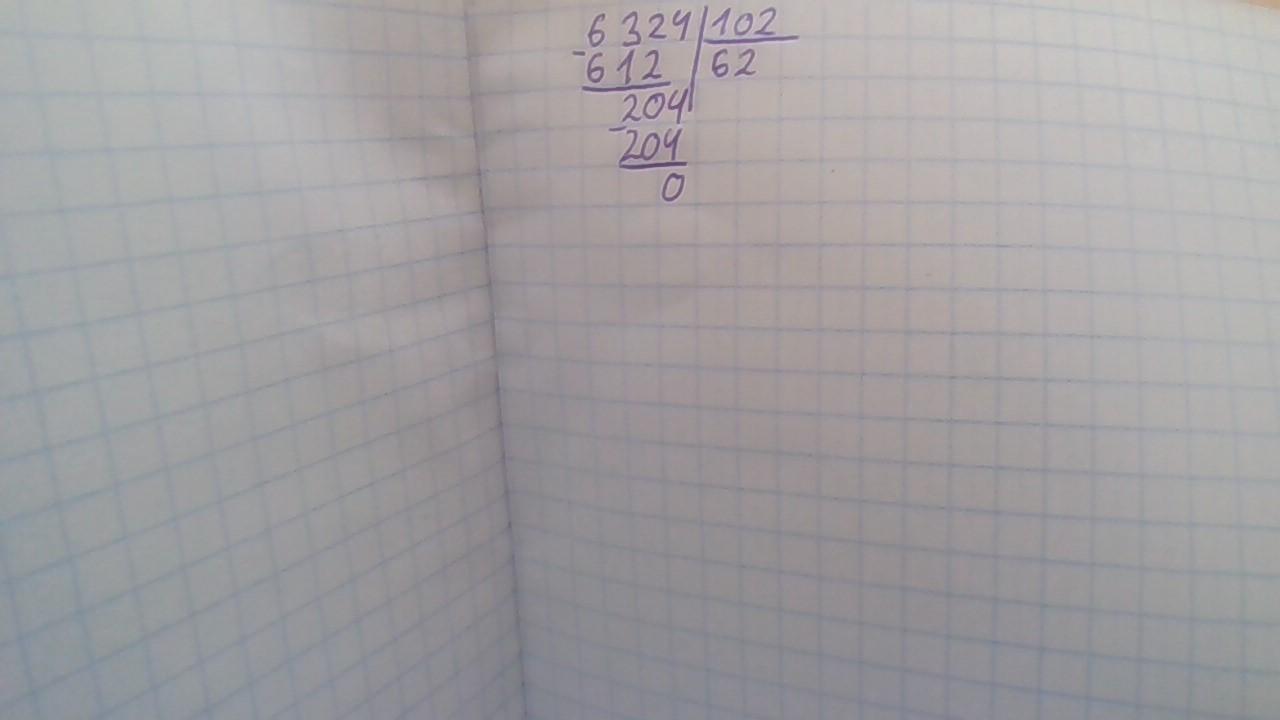 6324 102
-612 62
204
-204
0